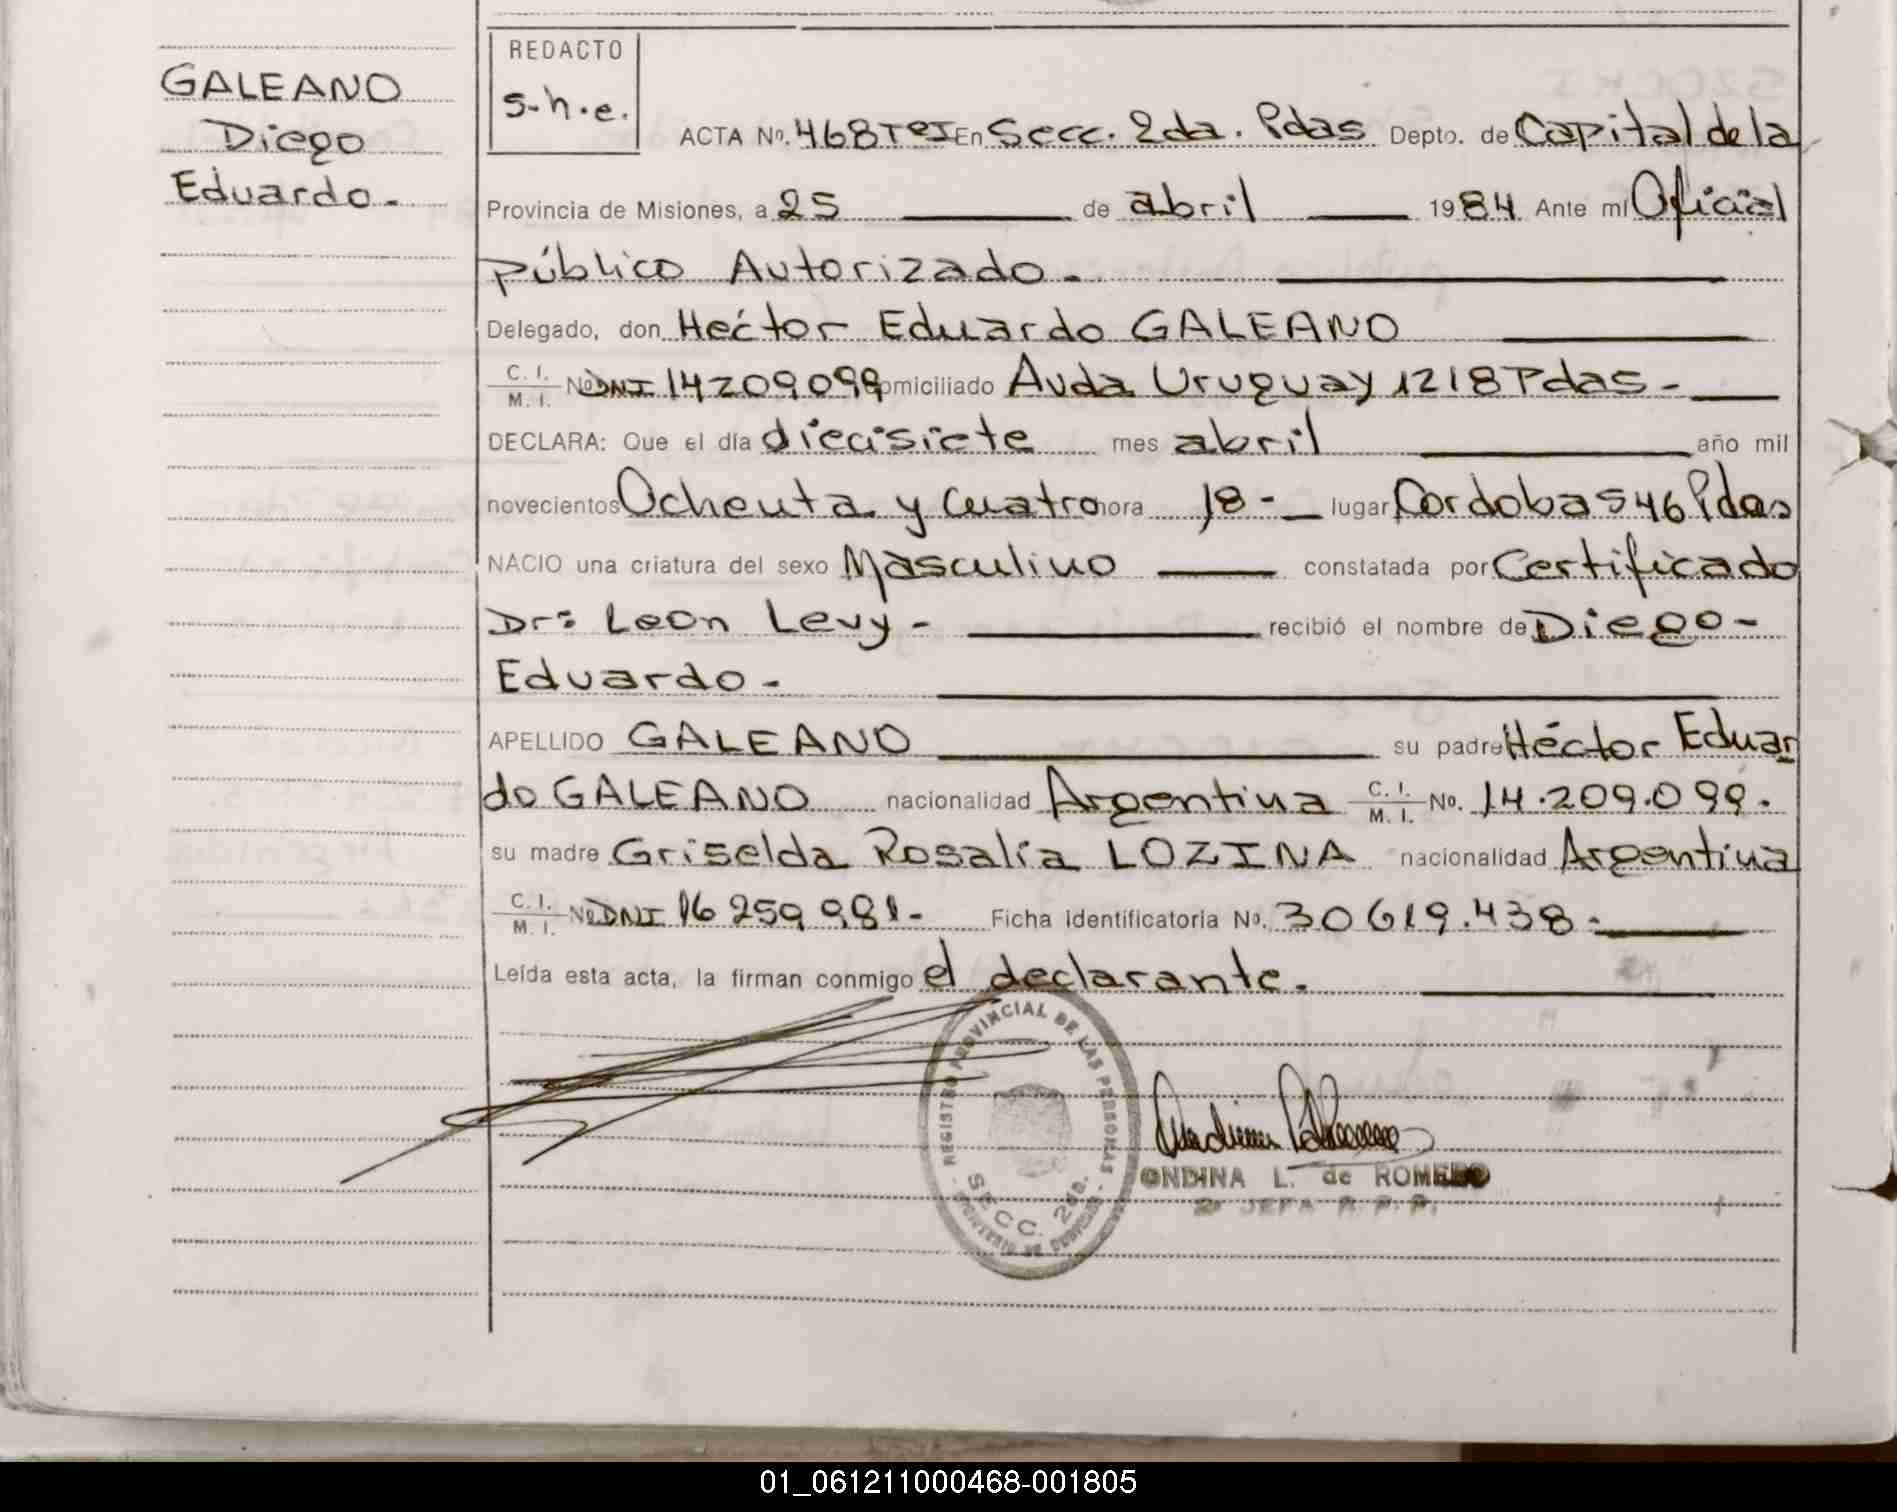 GALEANO
Diego
Eduardo.
REDACTO
s-h.e.
ACTA Nº. 468 TºI En Secc. 2da. Pdas Depto. de Capital de la
Provincia de Misiones, a 25 de abril 1984 Ante mí Oficial
público Autorizado.
Delegado, don Héctor Eduardo GALEANO
C. I. / M. I. Nº DNI 14209099 omiciliado Avda Uruguay 1218 Pdas-
DECLARA: Que el día diecisiete mes abril año mil
novecientos Ochenta y Cuatro hora 18- lugar Cordoba 546 Pdas
NACIO una criatura del sexo Masculino constatada por Certificado
Dr: León Levy- recibió el nombre de Diego-
Eduardo-
APELLIDO GALEANO su padre Héctor Eduar
do GALEANO nacionalidad Argentina C. I. / M. I. No. 14.209.099.
su madre Griselda Rosalía LOZINA nacionalidad Argentina
C. I. / M. I. Nº DNI 16 259 981- Ficha identificatoria Nº. 30619.438-
Leída esta acta, la firman conmigo el declarante.
REGISTRO PROVINCIAL DE LAS PERSONAS
SECC. 2da.
ONDINA L. de ROMERO
2º JEFA R. P. P.
01_061211000468-001805